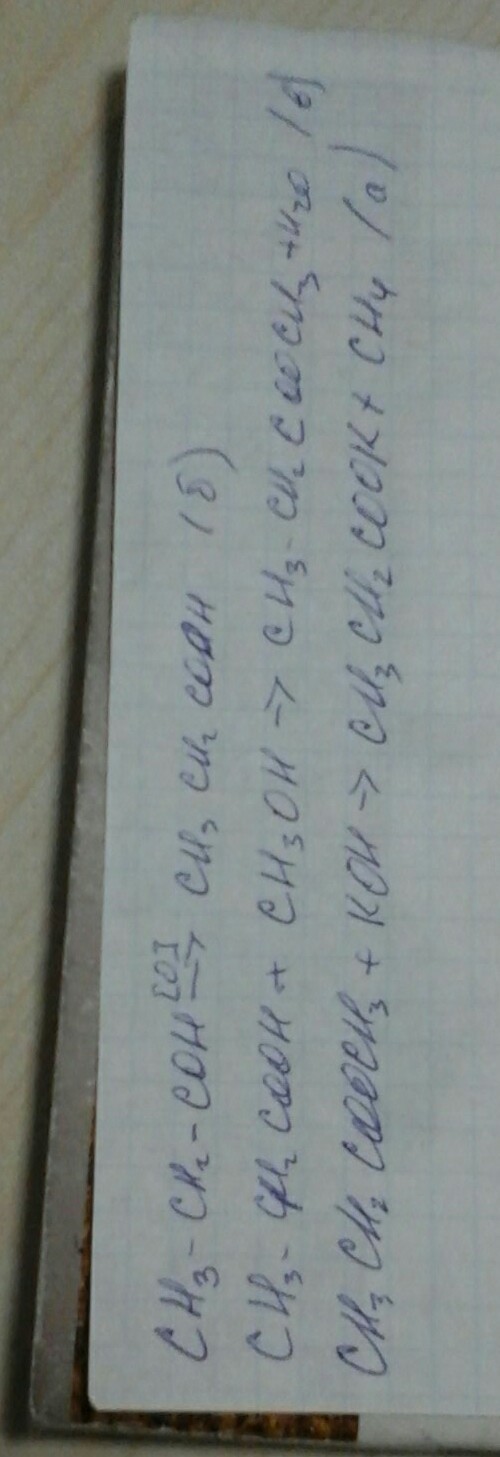 CH₃-CH₂-COH [O]→ CH₃ CH₂ COOH (б)
CH₃-CH₂ COOH + CH₃OH → CH₃-CH₂ COOCH₃ + H₂O (в)
CH₃ CH₂ COOCH₃ + KOH → CH₃ CH₂ COOK + CH₄ (а)